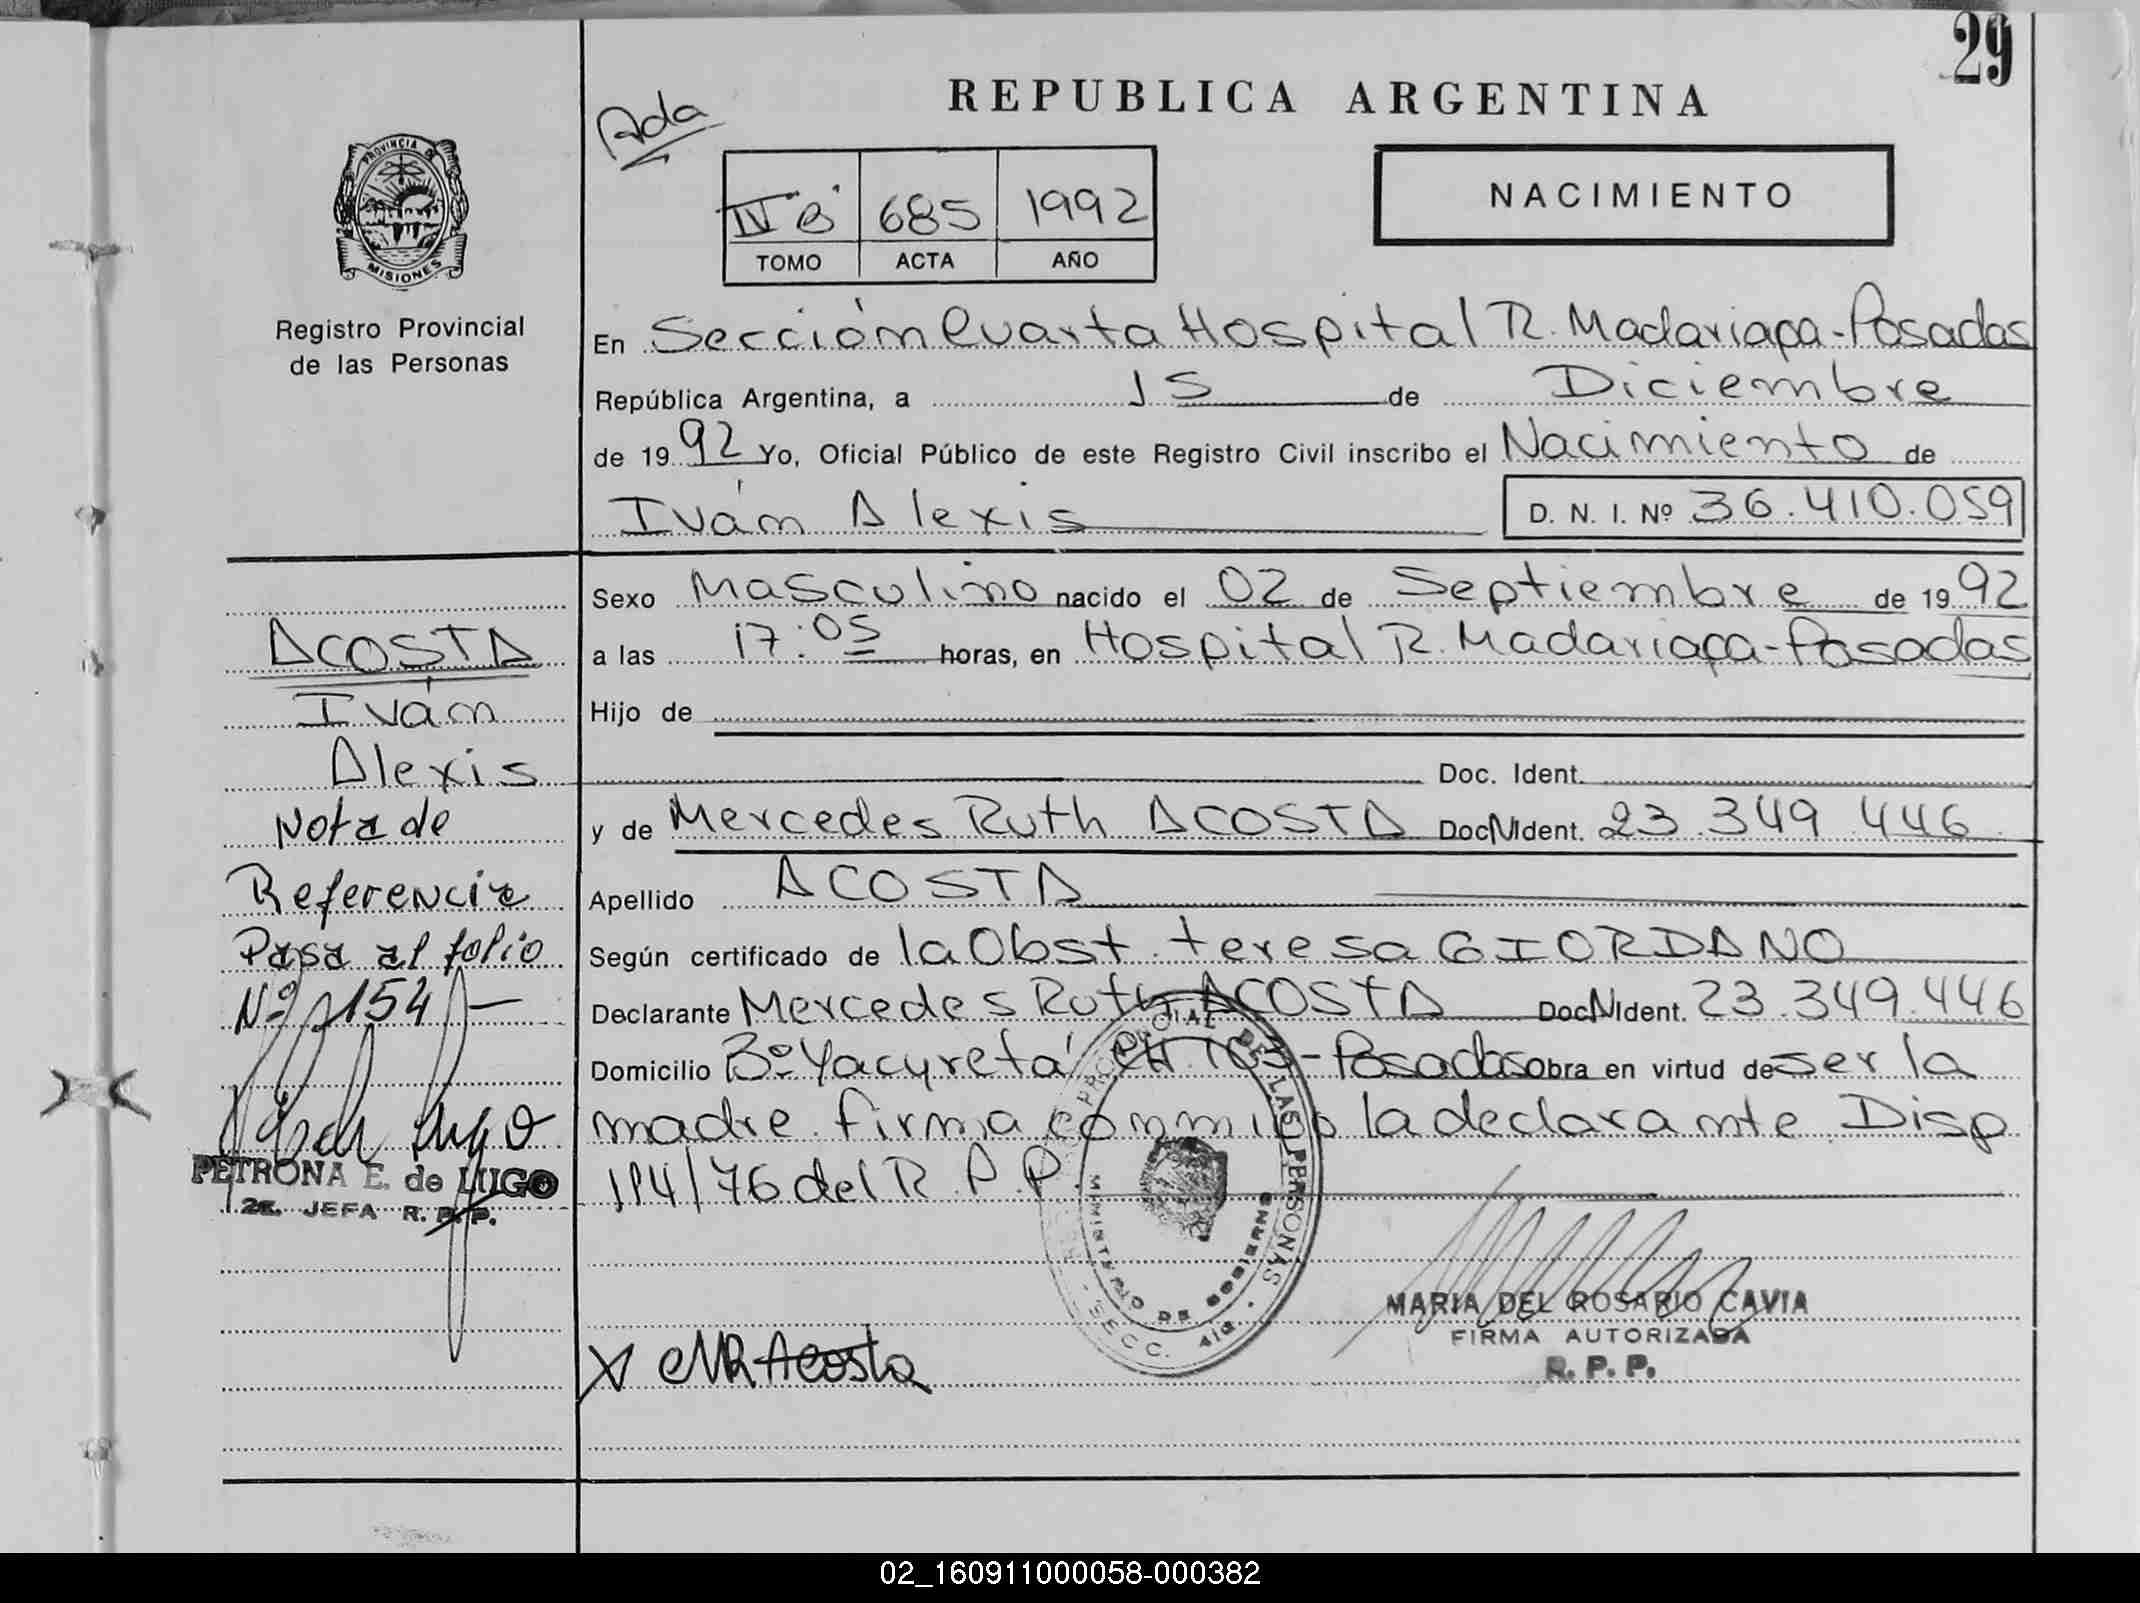 29
REPUBLICA ARGENTINA
Ada
NACIMIENTO
IV B 685 1992
TOMO ACTA AÑO
PROVINCIA DE
MISIONES
Registro Provincial
de las Personas
En Sección Cuarta Hospital R. Madariaga - Posadas
República Argentina, a 15 de Diciembre
de 1992 Yo, Oficial Público de este Registro Civil inscribo el Nacimiento de
Iván Alexis D. N. I. Nº 36.410.059
Sexo Masculino nacido el 02 de Septiembre de 1992
a las 17:05 horas, en Hospital R. Madariaga - Posadas
Hijo de
Doc. Ident.
y de Mercedes Ruth ACOSTA Doc N Ident. 23.349.446
Apellido ACOSTA
Según certificado de la Obst. teresa GIORDANO
Declarante Mercedes Ruth ACOSTA Doc N Ident. 23.349.446
Domicilio Bº Yacyretá CH 163 - Posadas obra en virtud de ser la
madre. firma conmigo la declarante. Disp
114/76 del R.P.P.
ACOSTA
Iván
Alexis
Nota de
Referencia
Pasa al folio
Nº 154 -
PETRONA E. de LUGO
2a. JEFA R. P. P.
PROVINCIAL DE LAS PERSONAS
MINISTERIO DE GOBIERNO
SECC. 4ta.
MARIA DEL ROSARIO CAVIA
FIRMA AUTORIZADA
R. P. P.
X MRAcosta
02_160911000058-000382